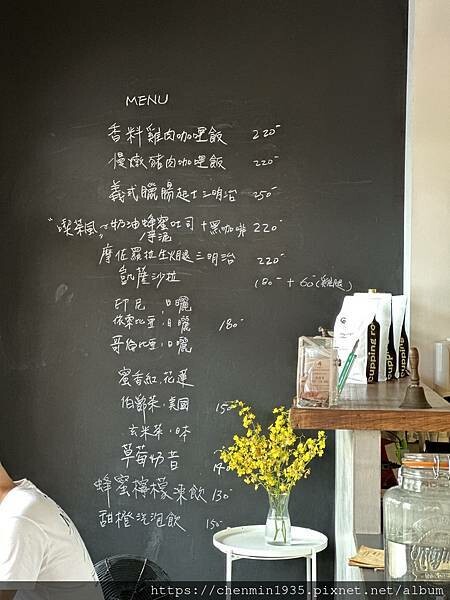 MENU
香料雞肉咖哩飯 220-
慢燉豬肉咖哩飯 220-
義式臘腸起士三明治 250-
"喫茶風"奶油蜂蜜吐司+黑咖啡 220-
厚泥
摩佐羅拉生火腿三明治 220-
凱薩沙拉 180-+60-(雞腿)
印尼,日曬
依索比亞,日曬 180-
哥倫比亞,日曬
蜜香紅,花蓮
伯爵茶,美國 15
玄米茶,日本
草莓奶昔
蜂蜜檸檬凍飲 130-
甜橙氣泡飲 150-
cupping ro
cupping
https://chenmin1935.pixnet.net/album